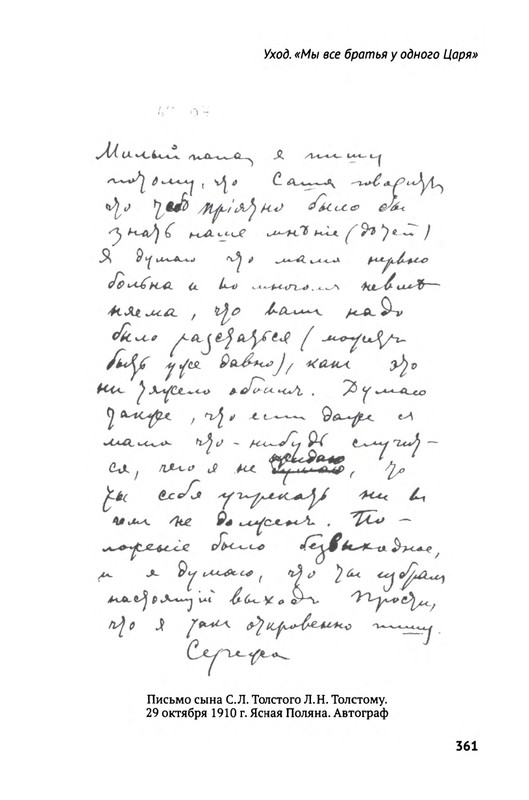 Уход. «Мы все братья у одного Царя»
Милый папа, я пишу
потому, что Саша говоритъ
что тебѣ пріятно было бы
знать наше мнѣніе (дѣтей)
Я думаю что мама нервно
больна и во многомъ невмѣ
няема, что вамъ надо
было разстаться (можетъ
быть уже давно), какъ это
ни тяжело обоимъ. Думаю
также, что если даже съ
мама что-нибудь случит-
ся, чего я не ожидаю, то
ты себя упрекать ни въ
чемъ не долженъ. По-
ложеніе было безвыходное,
и я думаю, что ты избралъ
настоящій выходъ. Прости,
что я такъ откровенно пишу.
Сережа
Письмо сына С.Л. Толстого Л.Н. Толстому.
29 октября 1910 г. Ясная Поляна. Автограф
361